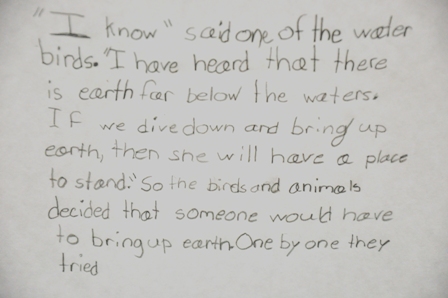 "I know" said one of the water
birds. "I have heard that there
is earth far below the waters.
If we dive down and bring up
earth, then she will have a place
to stand." So the birds and animals
decided that someone would have
to bring up earth. One by one they
tried